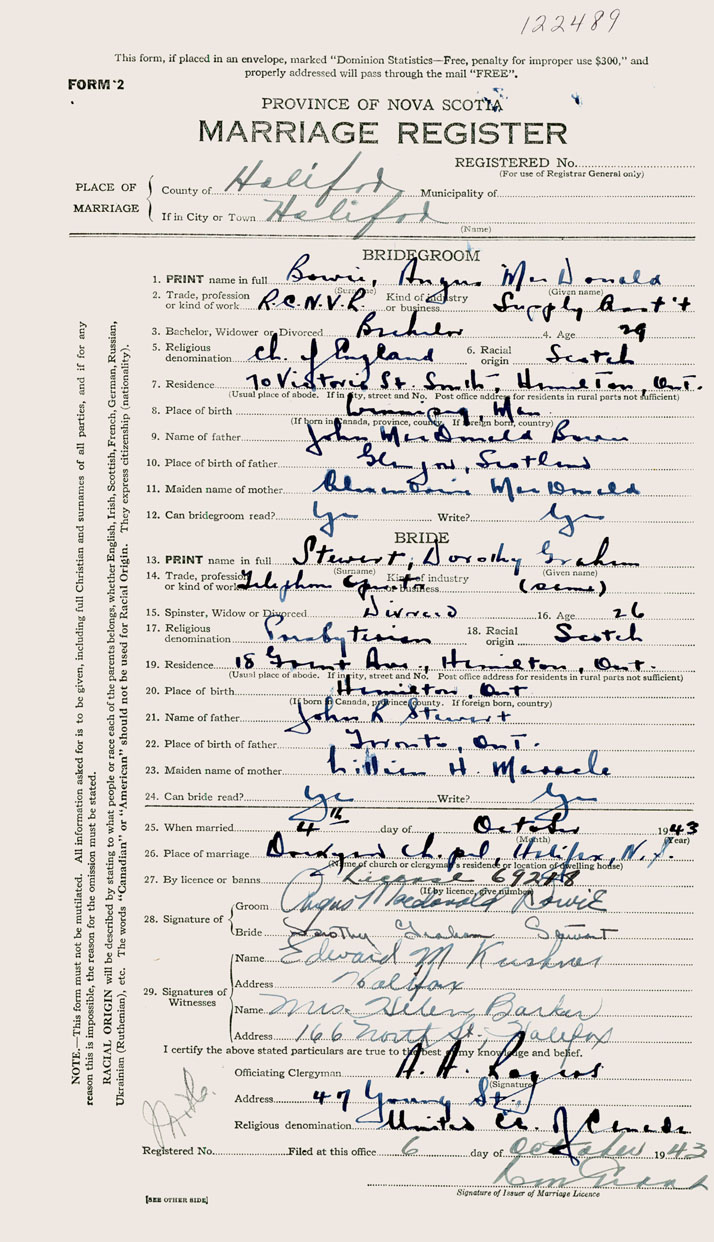 122489
This form, if placed in an envelope, marked "Dominion Statistics—Free, penalty for improper use $300," and
properly addressed will pass through the mail "FREE".
FORM 2
PROVINCE OF NOVA SCOTIA
MARRIAGE REGISTER
REGISTERED No.
(For use of Registrar General only)
PLACE OF MARRIAGE
County of Halifax Municipality of
If in City or Town Halifax
(Name)
BRIDEGROOM
1. PRINT name in full Bowie, Angus MacDonald
(Surname) (Given name)
2. Trade, profession or kind of work R.C.N.V.R. Kind of industry or business Supply Ass't
3. Bachelor, Widower or Divorced Bachelor 4. Age 29
5. Religious denomination Ch. of England 6. Racial origin Scotch
7. Residence 70 Victoria St. South, Hamilton, Ont.
(Usual place of abode. If in city, street and No. Post office address for residents in rural parts not sufficient)
8. Place of birth Winnipeg, Man
(If born in Canada, province, county. If foreign born, country)
9. Name of father John MacDonald Bowie
10. Place of birth of father Glasgow, Scotland
11. Maiden name of mother MacDonald
12. Can bridegroom read? Yes Write? Yes
BRIDE
13. PRINT name in full Stewart, Dorothy Graham
(Surname) (Given name)
14. Trade, profession or kind of work Telephone Kind of industry or business (same)
15. Spinster, Widow or Divorced Divorced 16. Age 26
17. Religious denomination Presbyterian 18. Racial origin Scotch
19. Residence 18 Grant Ave., Hamilton, Ont.
(Usual place of abode. If in city, street and No. Post office address for residents in rural parts not sufficient)
20. Place of birth Hamilton, Ont
(If born in Canada, province, county. If foreign born, country)
21. Name of father John R Stewart
22. Place of birth of father Toronto, Ont.
23. Maiden name of mother Lillian H. Maracle
24. Can bride read? Yes Write? Yes
25. When married 4th day of October 1943
(Month) (Year)
26. Place of marriage Dockyard Chapel, Halifax, N.S.
(Name of church or clergyman's residence or location of dwelling house)
27. By licence or banns License 69248
(If by licence, give number)
28. Signature of
Groom Angus Macdonald Bowie
Bride Dorothy Graham Stewart
29. Signatures of Witnesses
Name Edward M Kushner
Address Halifax
Name Mrs. Helen Barker
Address 166 North St, Halifax
I certify the above stated particulars are true to the best of my knowledge and belief.
Officiating Clergyman A. A. Rogers
(Signature)
Address 47 Young St.
Religious denomination United Ch. of Canada
Registered No. Filed at this office 6 day of October 1943
Signature of Issuer of Marriage Licence
[SEE OTHER SIDE]
NOTE.—This form must not be mutilated. All information asked for is to be given, including full Christian and surnames of all parties, and if for any
reason this is impossible, the reason for the omission must be stated.
RACIAL ORIGIN will be described by stating to what people or race each of the parents belongs, whether English, Irish, Scottish, French, German, Russian,
Ukrainian (Ruthenian), etc. The words "Canadian" or "American" should not be used for Racial Origin. They express citizenship (nationality).